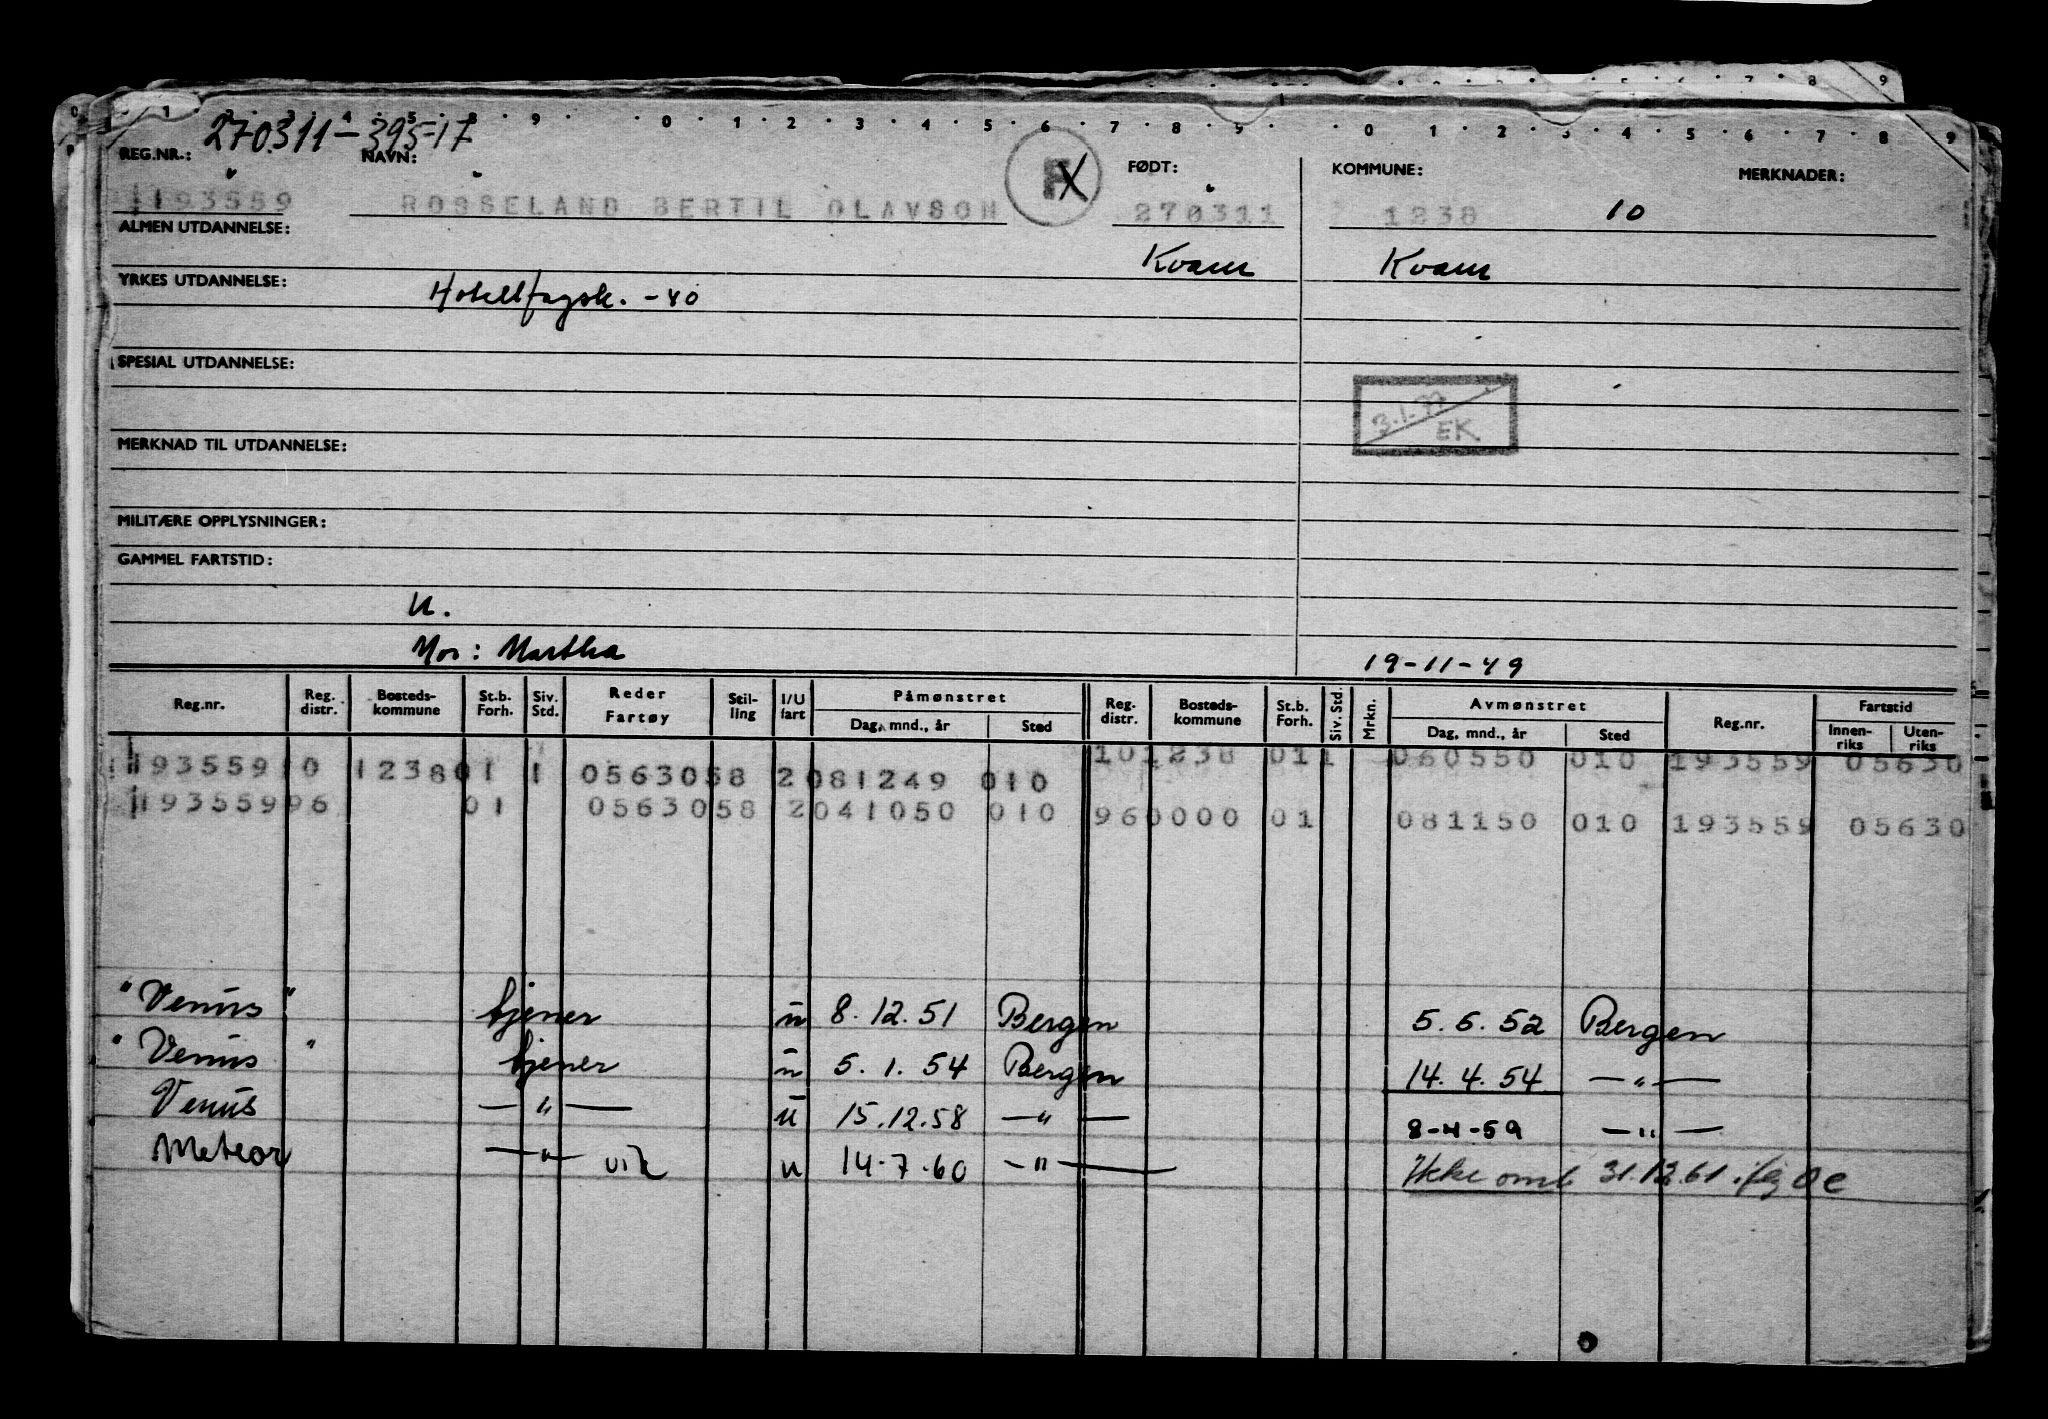 1 2 3 4 5 8 9 0 1 2 3 4 5 6 7 8 9 0 1 2 3 4 5 6 7 8 9
270311-39517
REG.NR.: NAVN: FØDT: KOMMUNE: MERKNADER:
193559 ROSSELAND BERTIL OLAVSON 270311 1238 10
ALMEN UTDANNELSE: Kvam Kvam
YRKES UTDANNELSE: Hotellfagsk. -40
SPESIAL UTDANNELSE:
3.1.77
EK
MERKNAD TIL UTDANNELSE:
MILITÆRE OPPLYSNINGER:
GAMMEL FARTSTID:
U.
Mor: Martha 19-11-49
Reg.nr. Reg. distr. Bosteds-kommune St.b. Forh. Siv. Std. Reder Fartøy Stil-ling I/U fart Påmønstret Dag, mnd., år Sted Reg. distr. Bosteds-kommune St.b. Forh. Siv. Std. Mrkn. Avmønstret Dag, mnd., år Sted Reg.nr. Fartstid Innen-riks Uten-riks
193559 10 1238 01 1 0563058 2 081249 010 10 1238 01 1 060550 010 193559 05630
193559 96 01 0563058 2 041050 010 96 0000 01 081150 010 193559 05630
"Venus" tjener u 8.12.51 Bergen 5.6.52 Bergen
"Venus" tjener u 5.1.54 Bergen 14.4.54 — " —
Venus — " — u 15.12.58 — " — 8-4-59 — " —
Meteor — " — vik u 14.7.60 — " — Ikke omb 31.12.61.